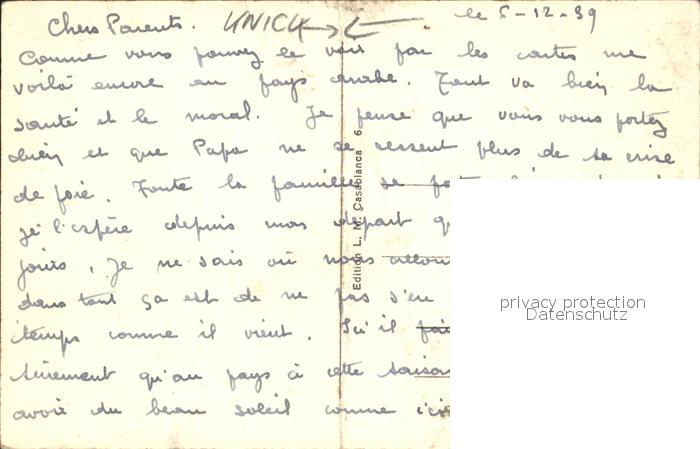 Chers Parents. UNICU le 5-12-39
Comme vous pouvez le voir par les cartes me
voilà encore en pays arabe. Tout va bien la
santé et le moral. Je pense que vous vous portez
bien et que Papa ne se ressent plus de sa crise
de foie. Toute la famille se
je l'espère depuis mon départ
jours. Je ne sais où nous allons
dans tout ça est de ne pas s'en
temps comme il vient. Ici il
sûrement qu'au pays à cette saison
avoir du beau soleil comme ici
Edition L. M. Casablanca 6
privacy protection
Datenschutz